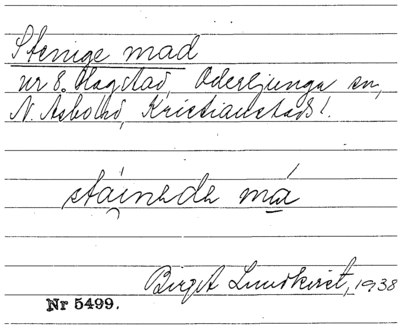 Stenige mad
nr 8. Hagstad, Oderljunga sn,
N. Åsbo hd, Kristianstads l.
stáinede má
Birgit Lundkvist, 1938
Nr 5499.